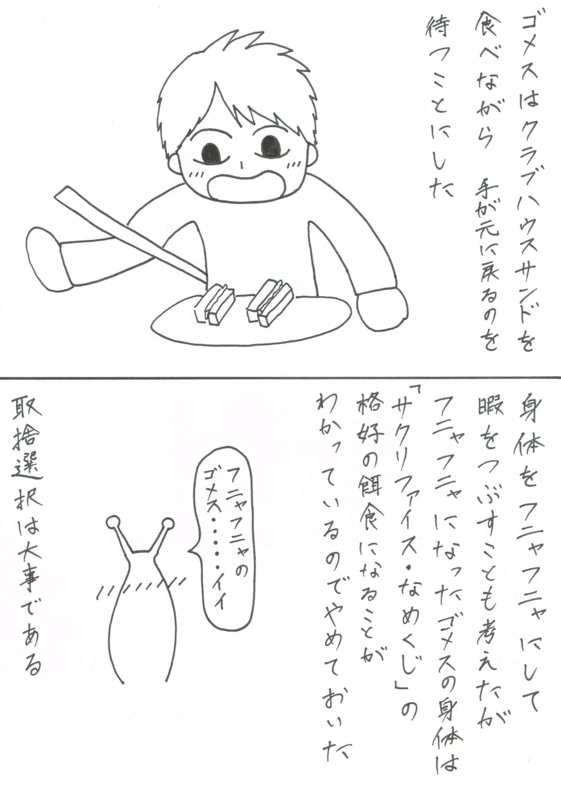 ゴメスはクラブハウスサンドを
食べながら 手が元に戻るのを
待つことにした
身体をフニャフニャにして
暇をつぶすことも考えたが
フニャフニャになったゴメスの身体は
「サクリファイス・なめくじ」の
格好の餌食になることが
わかっているのでやめておいた
フニャフニャの
ゴメス・・・・・イイ
取捨選択は大事である